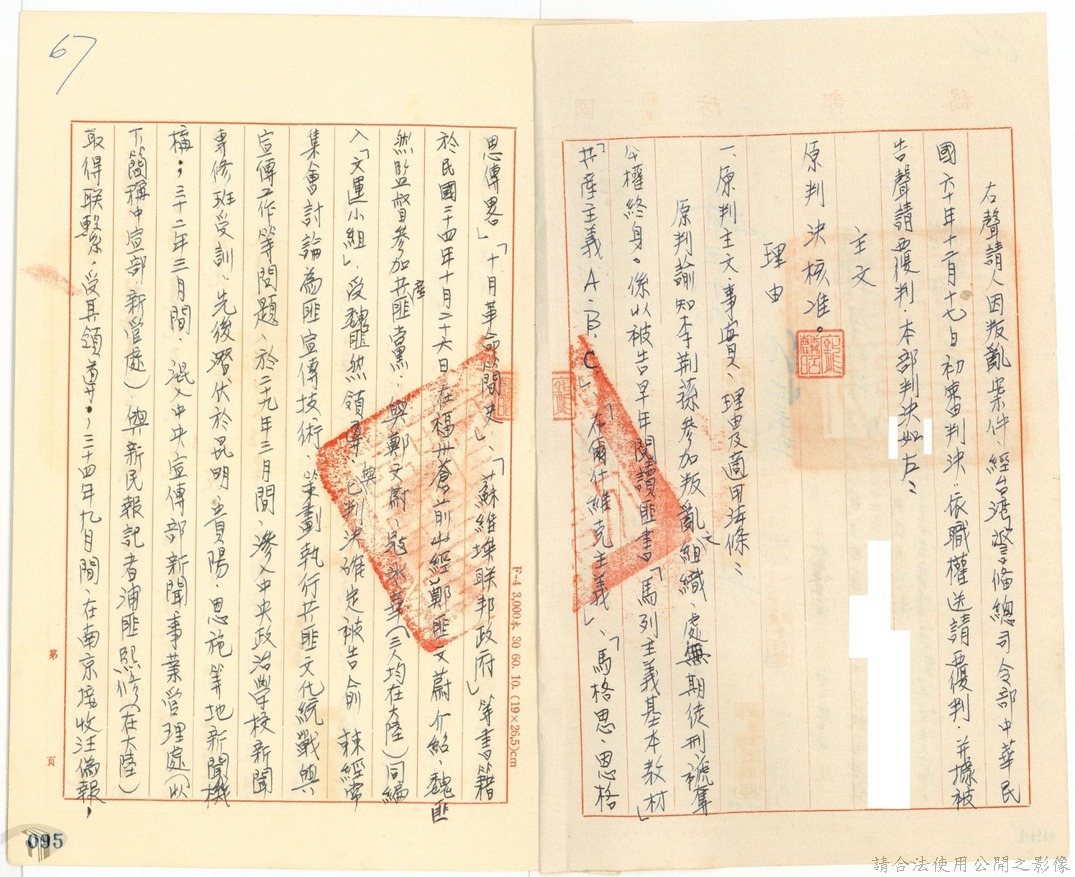 右聲請人因叛亂案件,經台灣警備總司令部中華民
國六十年十二月十七日初審判決,依職權送請覆判,并據被
告聲請覆判,本部判決如左:
主文
原判決核准。
理由
一、原判主文、事實、理由及適用法條:
原判諭知李荆蓀參加叛亂之組織,處無期徒刑,褫奪
公權終身。係以被告早年閱讀匪書「馬列主義基本教材」
「共產主義A.B.C」、「布爾什維克主義」、「馬格思、恩格
思傳畧」、「十月革命簡史」、「蘇維埃联邦政府」等書籍
於民國二十四年十月二十六日在福州蒼前山經鄭匪文蔚介紹,魏匪
然監督參加共匪產黨,與鄭文蔚、
(三人均在大陸)同編
入「文運小組」,受魏匪然領導,與已判決確定被告俞棘經常
集會討論為匪宣傳技術,策劃執行共匪文化統戰與
宣傳工作等問題、於二十九年三月間,滲入中央政治學校新聞
專修班受訓,先後潛伏於昆明、貴陽、恩施等地新聞機
構;三十二年三月間,混入中央宣傳部新聞事業管理處(以
下簡稱中宣部新管處)與新民報記者浦匪熙修(在大陸)
取得联繫,受其領導;三十四年九月間,在南京接收汪偽報,
F-4 3,000本 30 60. 10. (19×26.5)cm
第 頁
67
095
請合法使用公開之影像